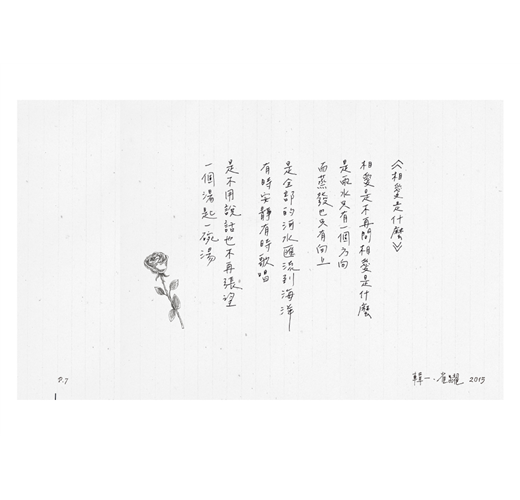 《相愛是什麼》
相愛是不再問相愛是什麼
是雨水只有一個方向
而蒸發也只有向上
是全部的河水匯流到海洋
有時安靜有時歌唱
是不用說話也不再張望
一個湯匙一碗湯
韓一．雀躍 2015
P.7